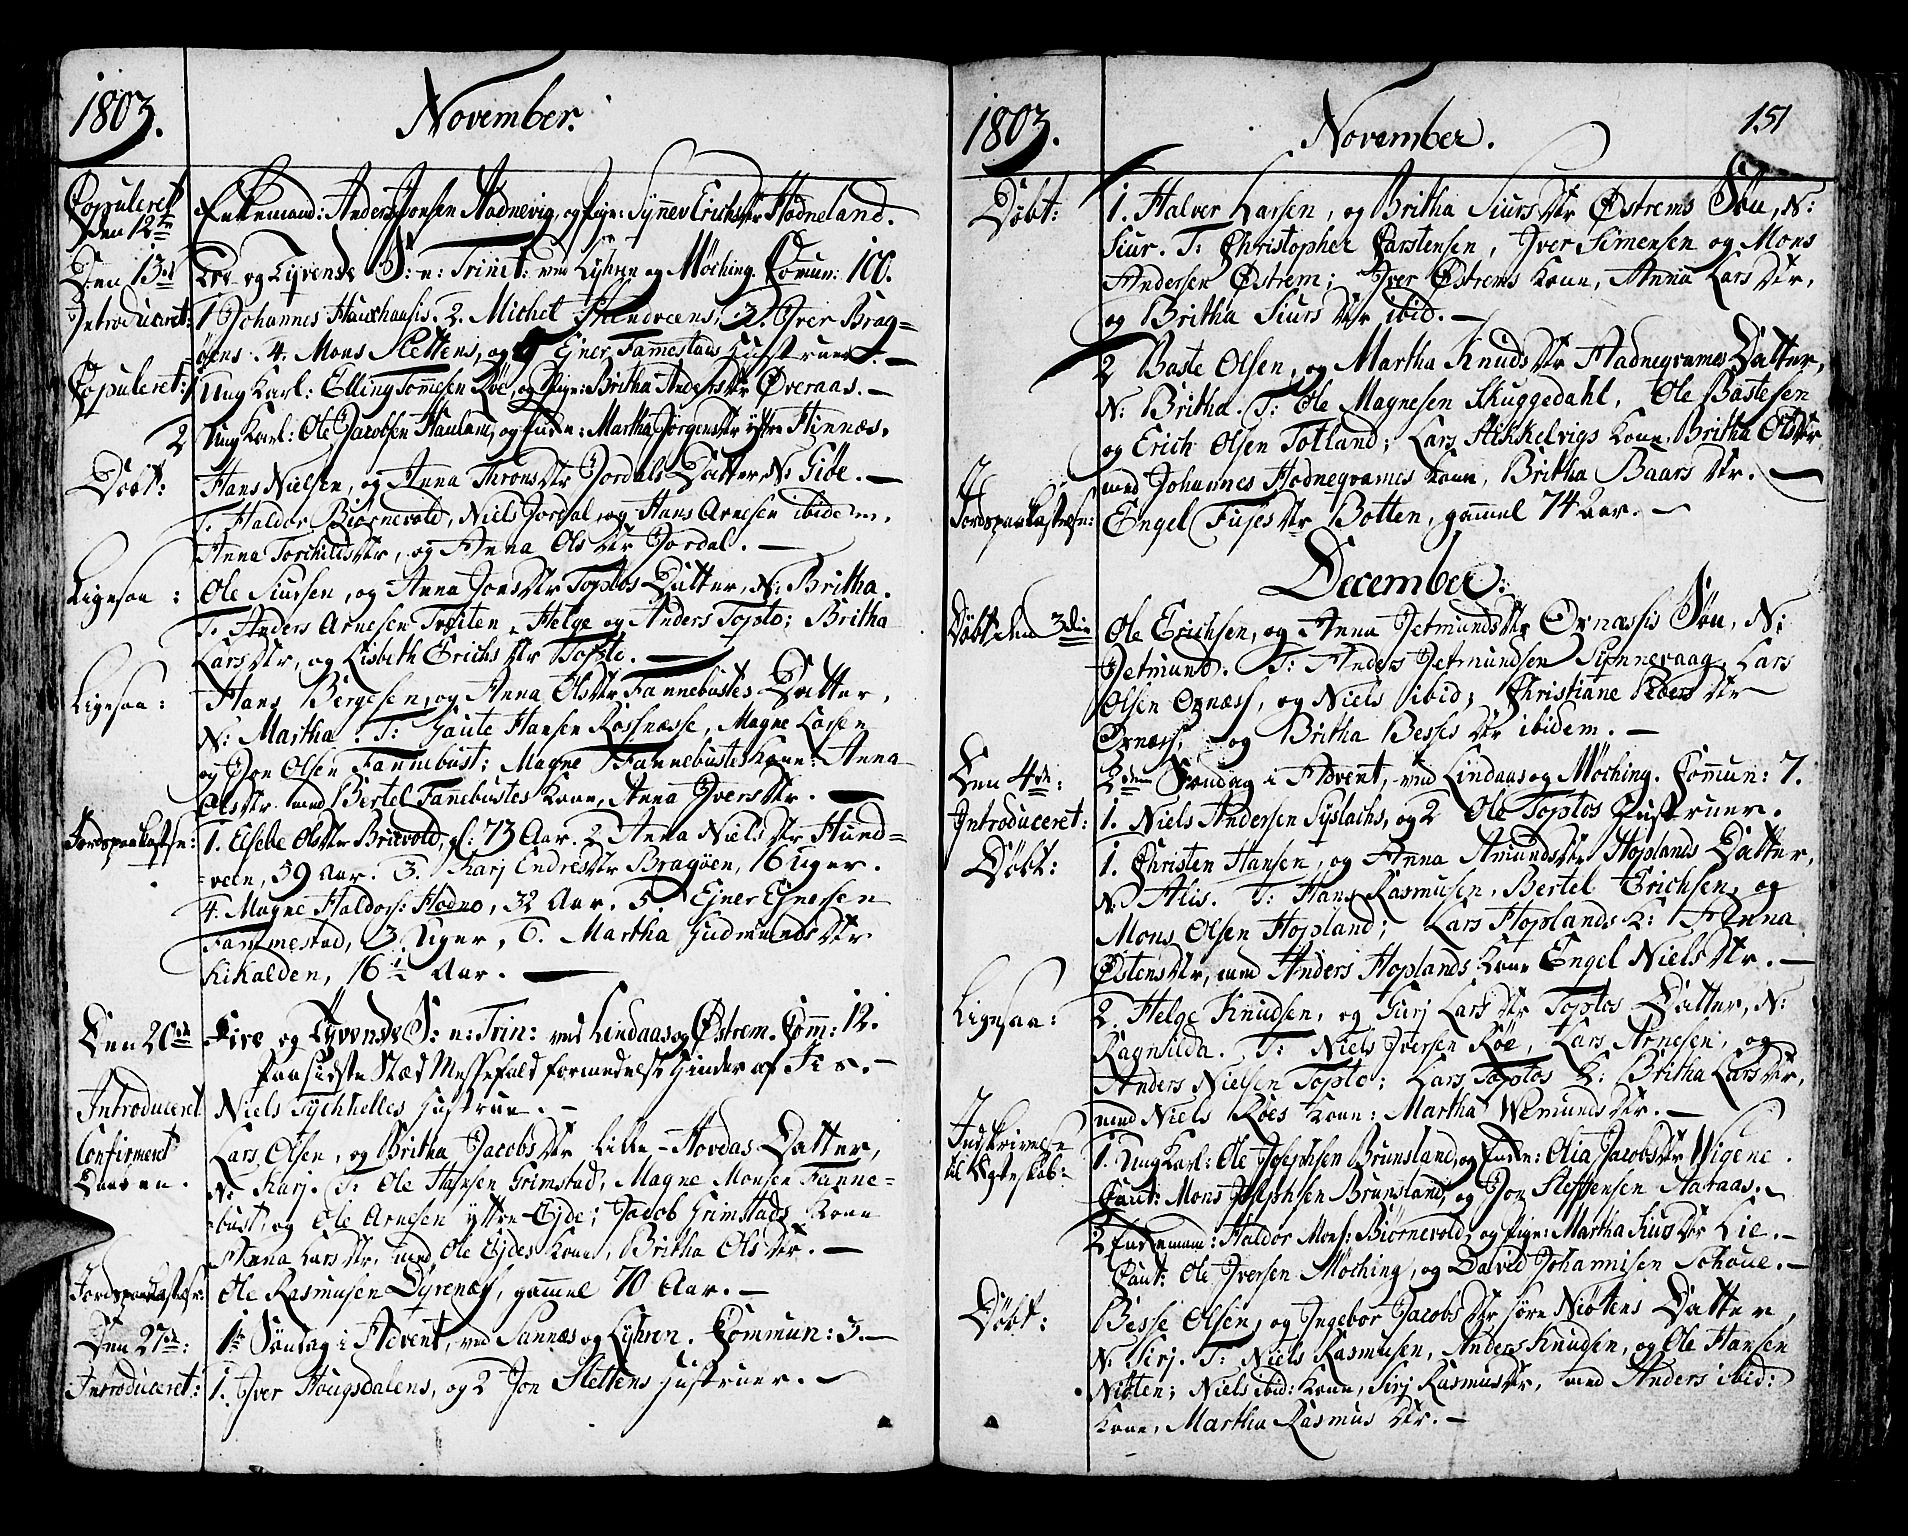 1803.
November.
Copuleret den 12te
Enkemand: Anders Jonsen Hadnevig, og Pige: Synnev Erichsdtr Hodneland.
Den 13de
Tre og Tyvende S: e: Trinit: ved Lyhren og Möching. Comun: 100.
Introduceret:
1 Johannes Hauxhausis. 2. Michel Hundveens, 3. Iver Brag=
öens. 4. Mons Slettens, og 5 Ejner Fammestads Hustruer. —
Copuleret:
1 Ung Karl: Elling Tommesen Röe, og Pige: Britha Andersdtr Øveraas. —
2 Ung Karl: Ole Jacobsen Haulam, og Enke: Martha Jörgensdtr ytre Hinnæs.
Döbt:
Hans Nielsen, og Anna Thronsdtr Jordals Datter, N: Giöe. —
T. Haldor Biörnevold, Niels Jordal, og Hans Arnesen ibidem,
Anna Torchildsdtr, og Anna Olsdtr Jordal. —
Ligesaa:
Ole Siursen, og Anna Jonsdtr Toptos Datter, N: Britha.
T. Anders Arnesen Tveiten, Helge og Anders Topto; Britha
Larsdtr, og Lisbeth Erichsdtr Topto. —
Ligesaa:
Hans Bergesen, og Anna Olsdtr Fannebustes Datter,
N: Martha. T: Gaute Hansen Rosnæsse, Magne Larsen
og Jon Olsen Fannebust; Magne Fannebustes Kone: Anna
Olsdtr med Bertel Fannebustes Kone, Anna Iversdtr. —
Jordspaakastelse:
1. Elsebe Olsdtr Brievold, gl: 73 Aar. 2 Anna Nielsdtr Hund=
=veen, 39 Aar. 3. Karj Endresdtr Bragöen, 16 Uger.
4. Magne Haldors: Hodne, 32 Aar. 5. Ejner Ejnersen
Fammestad, 3 Uger, 6. Martha Gudmundsdtr
Kikalden, 16½ Aar. —
Den 20de
Fire og Tyvende S: e: Trin: ved Lindaas og Østrem. Comm: 12.
Paa sidste Stæd Messefald formedelst Hinder af Iis. —
Introduceret
Niels Tyckhelles Hustrue. —
Confirment Daaben.
Lars Olsen, og Britha Jacobsdtr Lille-Hovdas Datter,
N: Karj. T: Ole Hansen Grimstad, Magne Monsen Fanne=
=bust, og Ole Arnesen yttre Ejde; Jacob Grimstads Kone
Anna Larsdtr, med Ole Ejdes Kone, Britha Olsdtr. —
Jordspaakastelse:
Ole Rasmusen Dyrenæs, gammel 70 Aar. —
Den 27de:
1te Söndag i Advent, ved Sannæs og Lyhren. Commun: 3. —
Introduceret:
1. Iver Hougsdalens, og 2 Jon Slettens Hustruer. —
1803.
November.
151
Döbt:
1. Halver Larsen, og Britha Siursdtr Østrems Sön, N:
Siur. T: Christopher Carstensen, Iver Simensen og Mons
Andersen Østrem; Iver Østrems Kone, Anna Larsdtr,
og Britha Siursdtr ibid. —
2 Baste Olsen, og Martha Knudsdtr Hadneqvames Datter,
N: Britha. T: Ole Magnesen Skuggedahl, Ole Bastesen
og Erich Olsen Totland; Lars Stikkelvigs Kone, Britha Olsdtr
med Johannes Hodneqvames Kone, Britha Baarsdtr. —
Jordspaakastelse:
Engel Fusesdtr Botten, gammel 74 Aar. —
December:
Döbt den 3die
Ole Erichsen, og Anna Jetmundsdtr Ornæssis Sön, N:
Jetmund. T: Anders Jetmundsen Sunnevaag, Lars
Olsen Ornæss, og Niels ibid; Christiane Pedersdtr
Ornæss, og Britha Bessesdtr ibidem. —
Den 4de:
2den Söndag i Advent, ved Lindaas og Möching. Commun: 7.
Introduceret:
1. Niels Andersen Syslachs, og 2 Ole Toptos Hustruer.
Döbt:
1. Christen Hansen, og Anna Amundsdtr Hoplands Datter,
N. Alis. T: Hans Rasmusen, Bertel Erichsen, og
Mons Olsen Hopland; Lars Hoplands K: Anna
Østensdtr, med Anders Hoplands Kone Engel Nielsdtr. —
Ligesaa:
2. Helge Knudsen, og Gurj Larsdtr Toptos Datter, N:
Ragnilda. T: Niels Iversen Röe, Lars Arnesen, og
Anders Nielsen Topto; Lars Toptos K: Britha Larsdtr,
med Niels Röes Kone: Martha Wemundsdtr. —
Indskrivelse til Ægteskab:
1. Ung Karl: Ole Josephsen Brunsland, og Enke: Olia Jacobsdtr Wigene.
Caut: Mons Josephsen Brunsland, og Jon Steffensen Aaraas. —
2 Enkemam: Haldor Mons: Biörnevold, og Pige: Martha Siursdtr Lie. —
Caut: Ole Iversen Möching, og David Johannisen Schoue. —
Döbt:
Besse Olsen, og Ingebor Jacobsdtr söre Niötens Datter,
N. Sirj. T: Niels Rasmusen, Anders Knudsen, og Ole Hansen
Niöten; Niels ibid: Kone, Sirj Rasmusdtr, med Anders ibid:
Kone, Martha Rasmusdtr. —